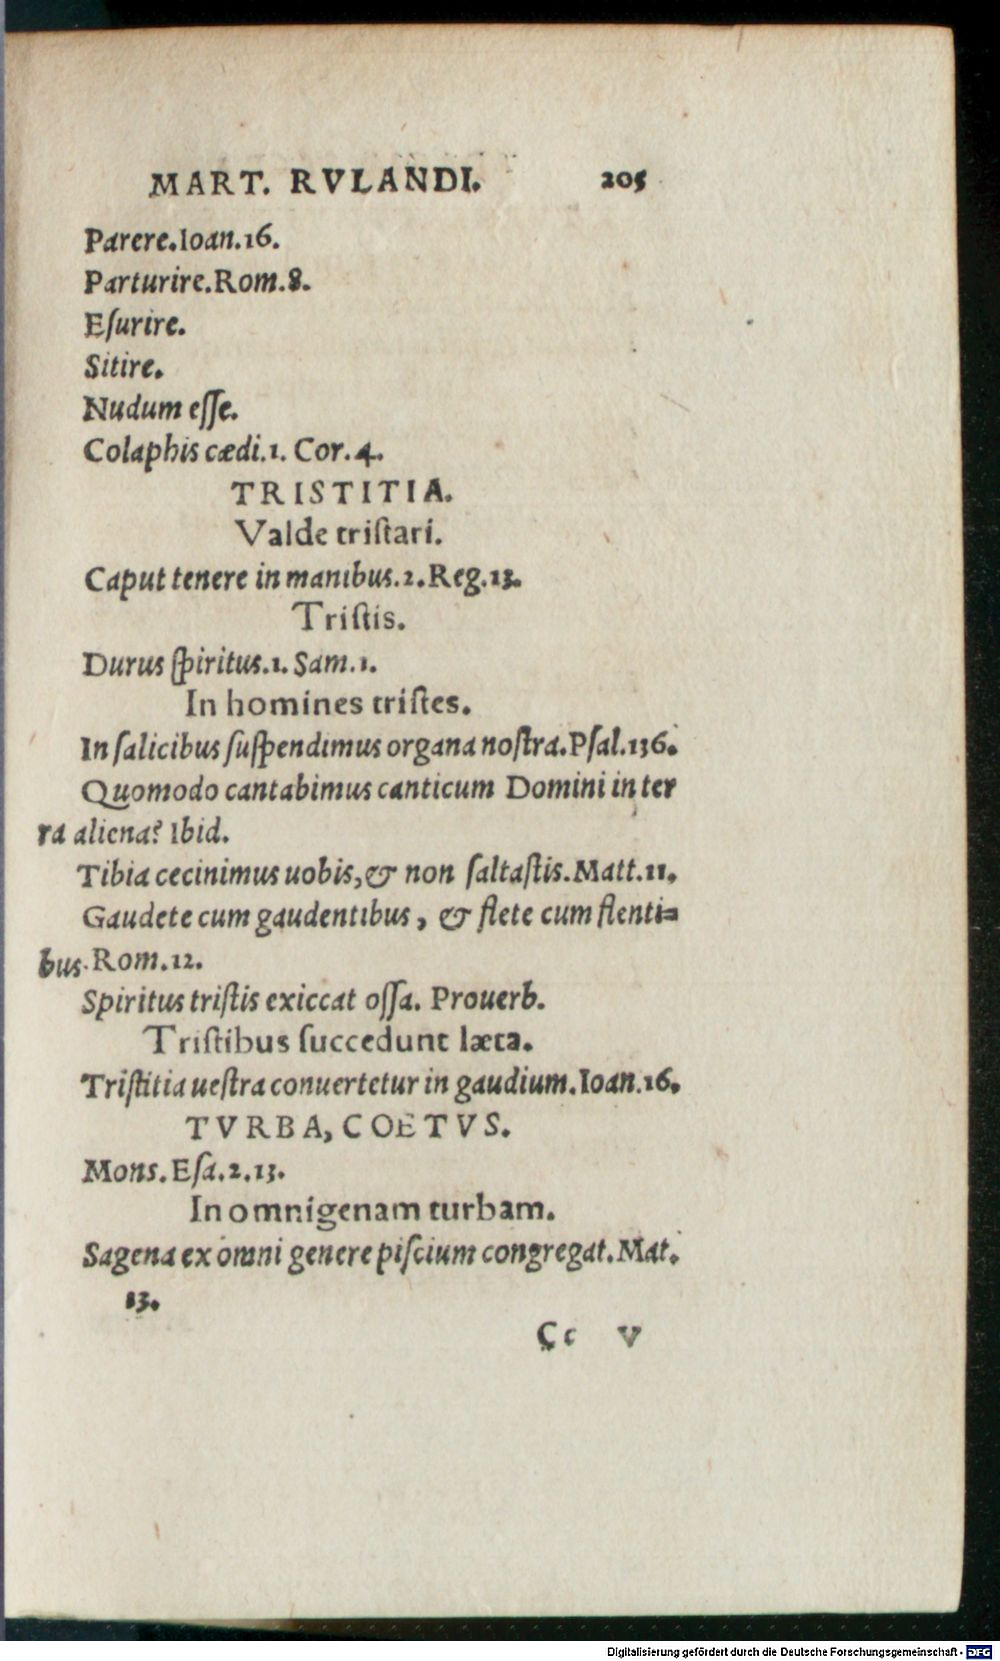 MART. RVLANDI. 205
Parere.Ioan.16.
Parturire.Rom.8.
Eſurire.
Sitire.
Nudum eſſe.
Colaphis cædi.1. Cor.4.
TRISTITIA.
Valde triſtari.
Caput tenere in manibus.2.Reg.13.
Triſtis.
Durus ſpiritus.1. Sam.1.
In homines triſtes.
In ſalicibus ſuſpendimus organa noſtra.Pſal.136.
Quomodo cantabimus canticum Domini in ter
ra aliena? Ibid.
Tibia cecinimus uobis,& non ſaltaſtis.Matt.11.
Gaudete cum gaudentibus, & flete cum flenti=
bus.Rom.12.
Spiritus triſtis exiccat oſſa. Prouerb.
Triſtibus ſuccedunt læta.
Triſtitia ueſtra conuertetur in gaudium.Ioan.16.
TVRBA, COETVS.
Mons.Eſa.2.13.
In omnigenam turbam.
Sagena ex omni genere piſcium congregat.Mat.
13.
Cc V
Digitalisierung gefördert durch die Deutsche Forschungsgemeinschaft - DFG